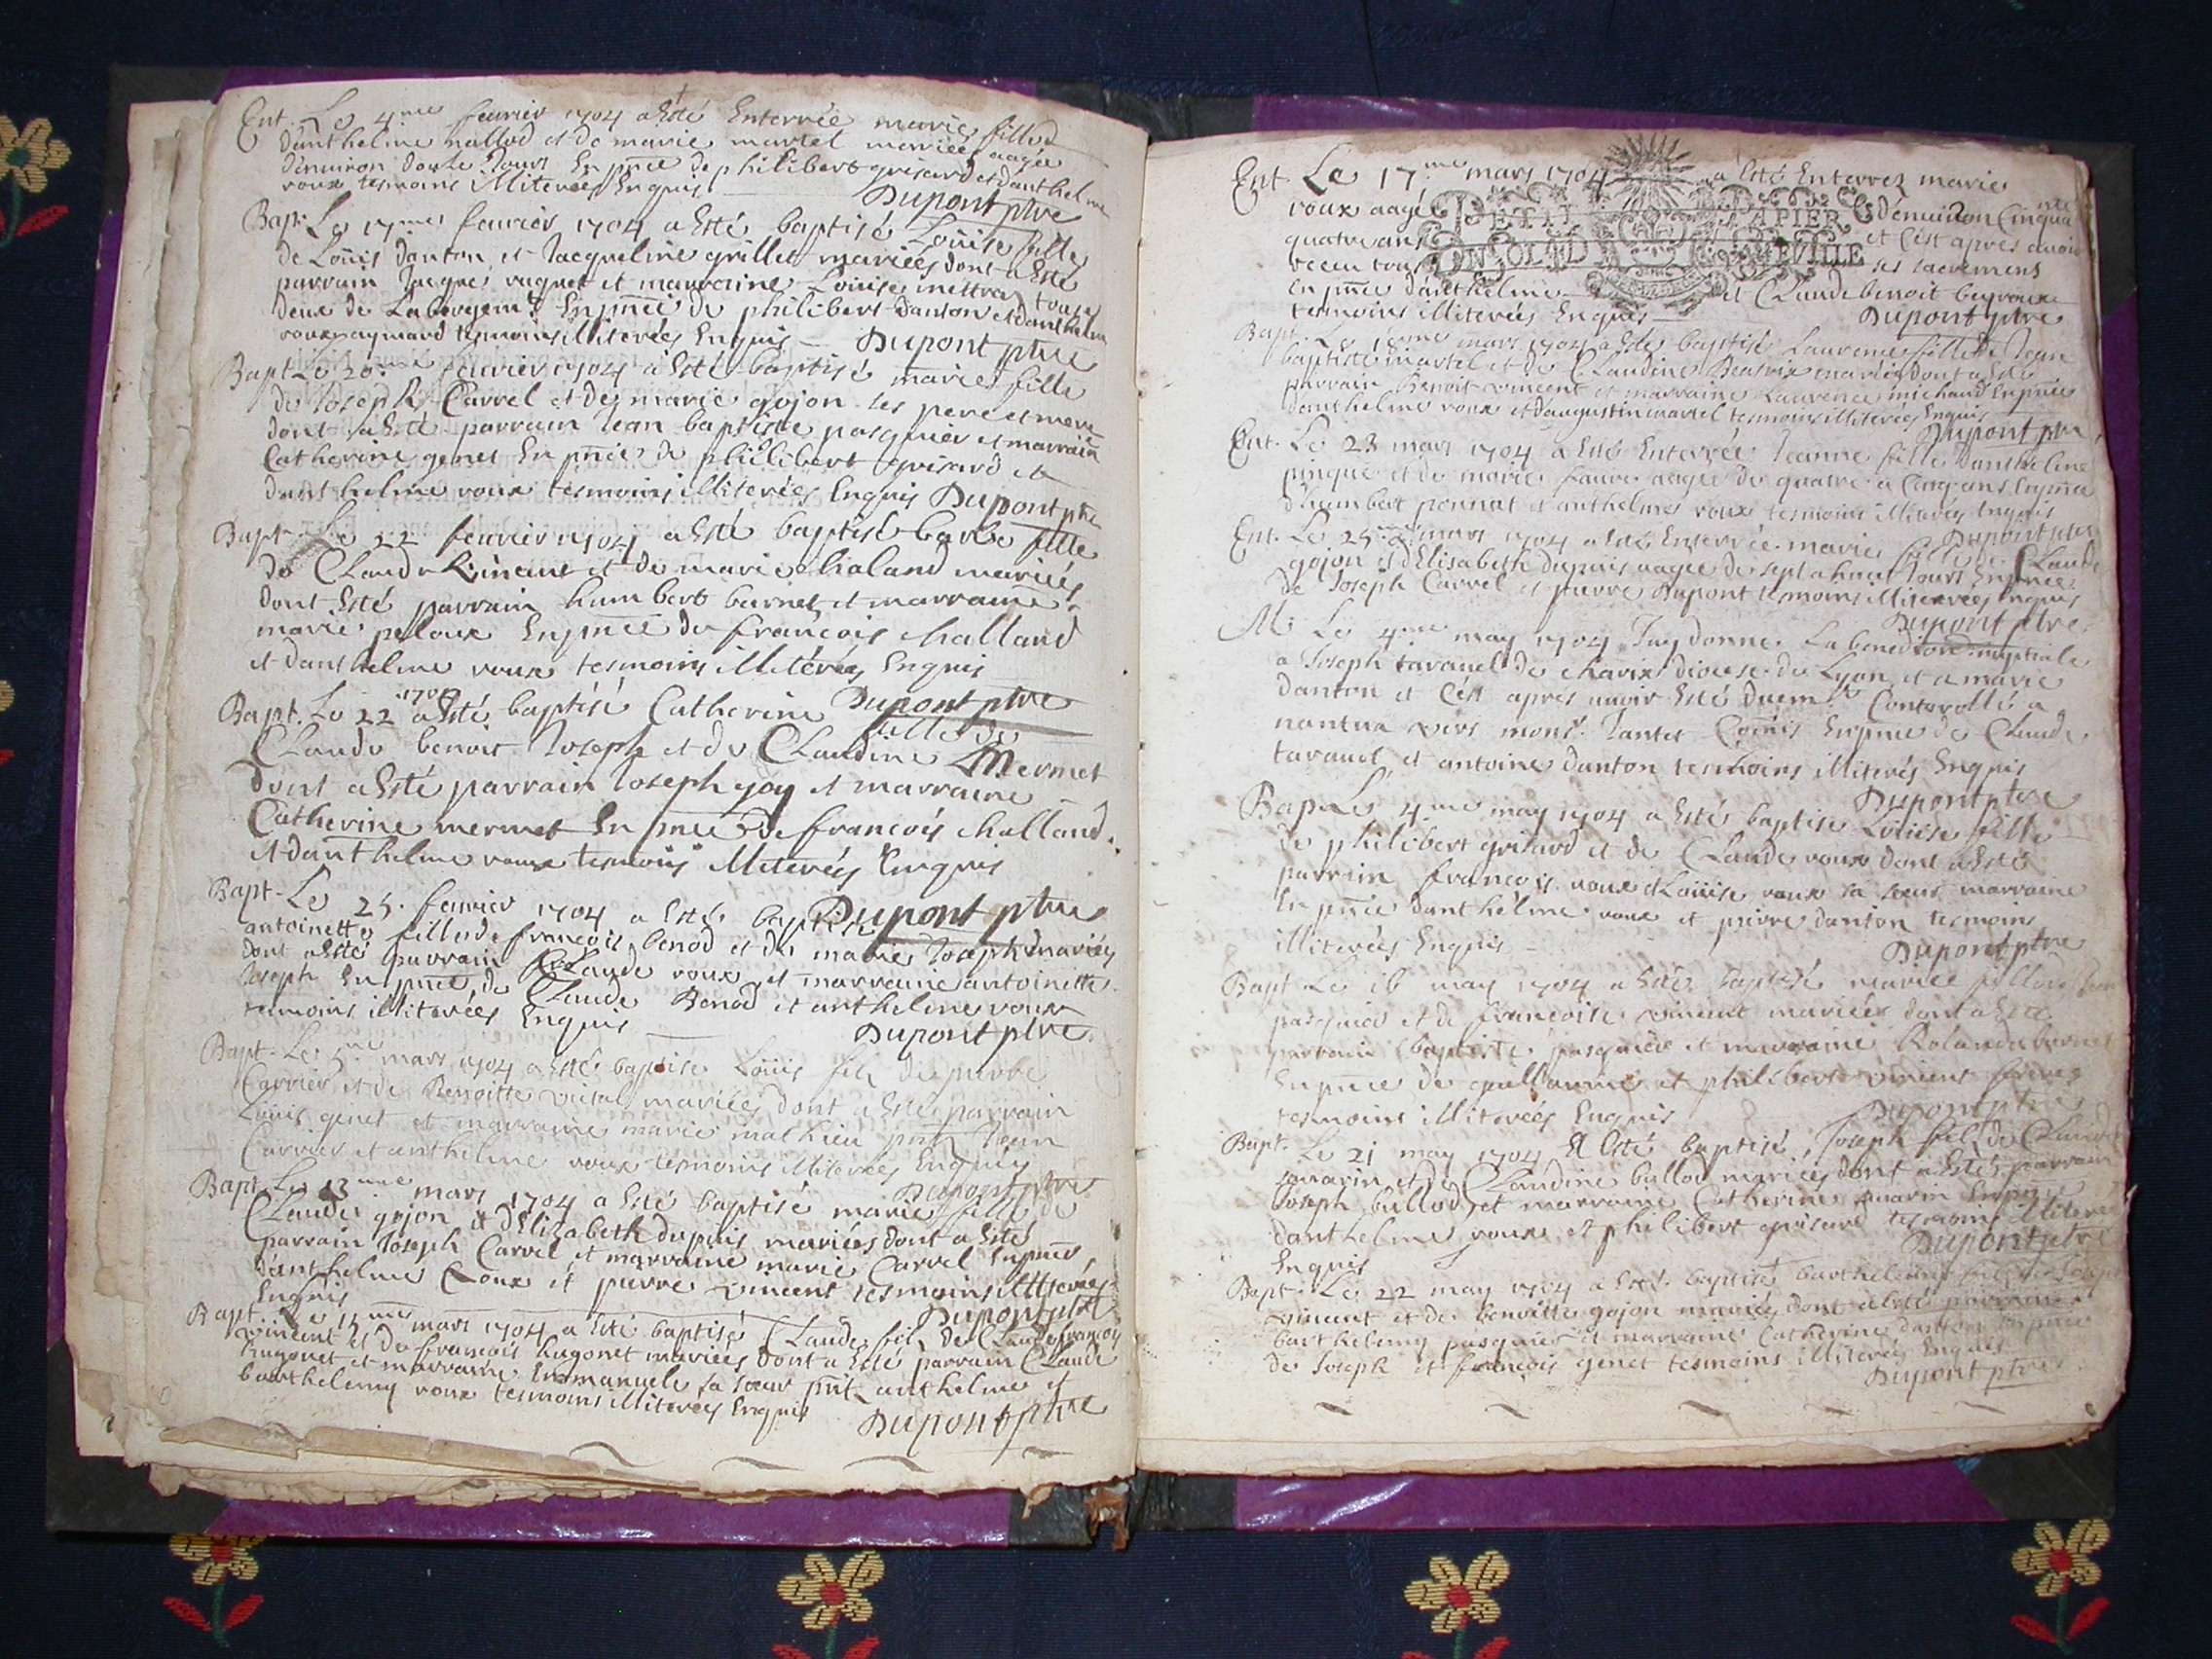 Ent. Le 4me feurier 1704 a Esté Enterrée marie fille
d'anthelme nallod et de marie martel mariés aagée
d'enuiron douze Jours En pnce de philibert grisard et d'anthelme
roux tesmoins illiterés Enquis
Dupont ptre
Bapt. Le 17me feurier 1704 a Esté baptisé Loüise fille
de Loüis Danton et Jacqueline grillet mariés dont a Esté
parrain Jacque et marraine Loüise tous
deux de En pnce de philibert danton et d'anthelme
roux tesmoins illiterés Enquis Dupont ptre
Bapt. Le 20me feurier 1704 a Esté baptisé marie fille
de Joseph Carrel et de marie gojon ses pere et mere
dont a Esté parrain Jean baptiste pasquier et marraine
Catherine genet En pnce de philibert grisard et
d'anthelme roux tesmoins illiterés Enquis Dupont ptre
Bapt. Le 22 feurier 1704 a Esté baptisé barbe fille
de Claude Vincent et de marie chaland mariés
dont Esté parrain humbert burnet et marraine
marie peloux En pnce de françois challand
et d'anthelme roux tesmoins illiterés Enquis
Dupont ptre
Bapt. Le 22 1704 a Esté baptisé Catherine fille de
Claude benoit Joseph et de Claudine Mermet
dont a Esté parrain Joseph goy et marraine
Catherine mermet En pnce de françois challand
et d'anthelme roux tesmoins illiterés Enquis
Dupont ptre
Bapt. Le 25. feurier 1704 a Esté baptisé
antoinette fille de françois benod et de marie Joseph mariés
dont a Esté parrain Claude roux et marraine antoinette
Joseph En pnce de Claude Benod et anthelme roux
tesmoins illiterés Enquis
Dupont ptre
Bapt. Le 5me mars 1704 a Esté baptisé Loüis fils de pierre
Carrier et de Benoitte mariés dont a Esté parrain
Loüis genet et marraine marie mathieu pnt Jean
Carrier et anthelme roux tesmoins illiterés Enquis
Dupont ptre
Bapt. Le 13me mars 1704 a Esté baptisé marie fille de
Claude gojon et d'Elizabeth dupuis mariés dont a Esté
parrain Joseph Carrel et marraine marie Carrel En pnce
d'anthelme Roux et pierre vincent tesmoins illiterés
Enquis
Dupont ptre
Bapt. Le 15me mars 1704 a Esté baptisé Claude fils de Claude françois
vincent et de françois hugonet mariés dont a Esté parrain Claude
hugonet et marraine Emmanuele sa soeur pnt anthelme et
barthelemy roux tesmoins illiterés Enquis
Dupont ptre
Ent. Le 17me mars 1704 a Esté Enterrez marie
roux aagée d'enuiron Cinquante
quatre ans et C'est apres auoir
receu tous ses sacremens
En pnce d'anthelme et Claude benoit beyroux
tesmoins illiterés Enquis
Dupont ptre
PETIT PAPIER
Bapt. Le mars 1704 a Esté baptisé Laurence fille de Jean
baptiste martel et de Claudine mariés dont a Esté
parrain Benoit vincent et marraine Laurence michaud En pnce
d'anthelme roux et d'augustin martel tesmoins illiterés Enquis
Dupont ptre
Ent. Le 23 mars 1704 a Esté Enterrée Jeanne fille d'anthelme
pinque et de marie faure aagée de quatre a Cinq ans En pnce
d'humbert ponnat et anthelme roux tesmoins illiterés Enquis
Dupont ptre
Ent. Le 25me mars 1704 a Esté Enterrée marie fille de Claude
gojon et d'Elisabeth dupuis aagée de sept a huit Jours En pnce
de Joseph Carrel et pierre Dupont tesmoins illiterés Enquis
Dupont ptre
M. Le 4me may 1704 J'ay donné La benediction nuptiale
a Joseph tavauel de charix diocese de Lyon et a marie
danton et C'est apres auoir Esté duem.t Controllé a
nantua vers mons.r Jantet Comis En pnce de Claude
tavauel et antoine danton tesmoins illiterés Enquis
Dupont ptre
Bap. Le 4me may 1704 a Esté baptisé Loüise fille
de philibert grisard et de Claude roux dont a Esté
parrain françois roux et Loüise roux sa soeur marraine
En pnce d'anthelme roux et pierre danton tesmoins
illiterés Enquis
Dupont ptre
Bapt. Le 16 may 1704 a Esté baptisé marie fille de
pasquier et de françoise vincent mariés dont a Esté
parrain baptiste pasquier et marraine Rolande burnet
En pnce de guillaume et philibert vincent freres
tesmoins illiterés Enquis
Dupont ptre
Bapt. Le 21 may 1704 A Esté baptisé Joseph fils de Claude
et de Claudine bullod mariés dont a Esté parrain
Joseph bullod et marraine Catherine En pnce
d'anthelme roux et philibert grisard tesmoins illiterés
Enquis
Dupont ptre
Bapt. Le 22 may 1704 a Esté baptisé barthelemy fils de Joseph
vincent et de benoitte gojon mariés dont a Esté parrain
barthelemy pasquier et marraine Catherine danton En pnce
de Joseph et françois genet tesmoins illiterés Enquis
Dupont ptre